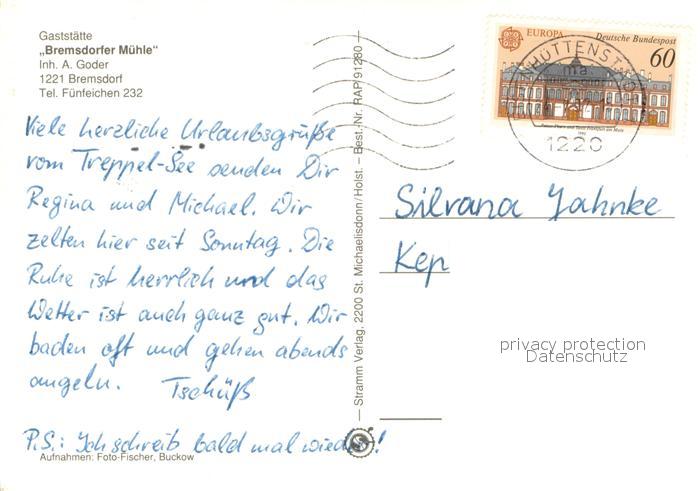 Gaststätte
„Bremsdorfer Mühle“
Inh. A. Goder
1221 Bremsdorf
Tel. Fünfeichen 232
Viele herzliche Urlaubsgrüße
vom Treppel-See senden Dir
Regina und Michael. Wir
zelten hier seit Sonntag. Die
Ruhe ist herrlich und das
Wetter ist auch ganz gut. Wir
baden oft und gehen abends
angeln. Tschüß
P.S.: Ich schreib bald mal wieder!
Aufnahmen: Foto-Fischer, Buckow
— Stramm Verlag, 2200 St. Michaelisdonn/Holst. – Best.-Nr. RAP 91280 —
EUROPA Deutsche Bundespost
60
1220
Silvana Jahnke
Kep
privacy protection
Datenschutz